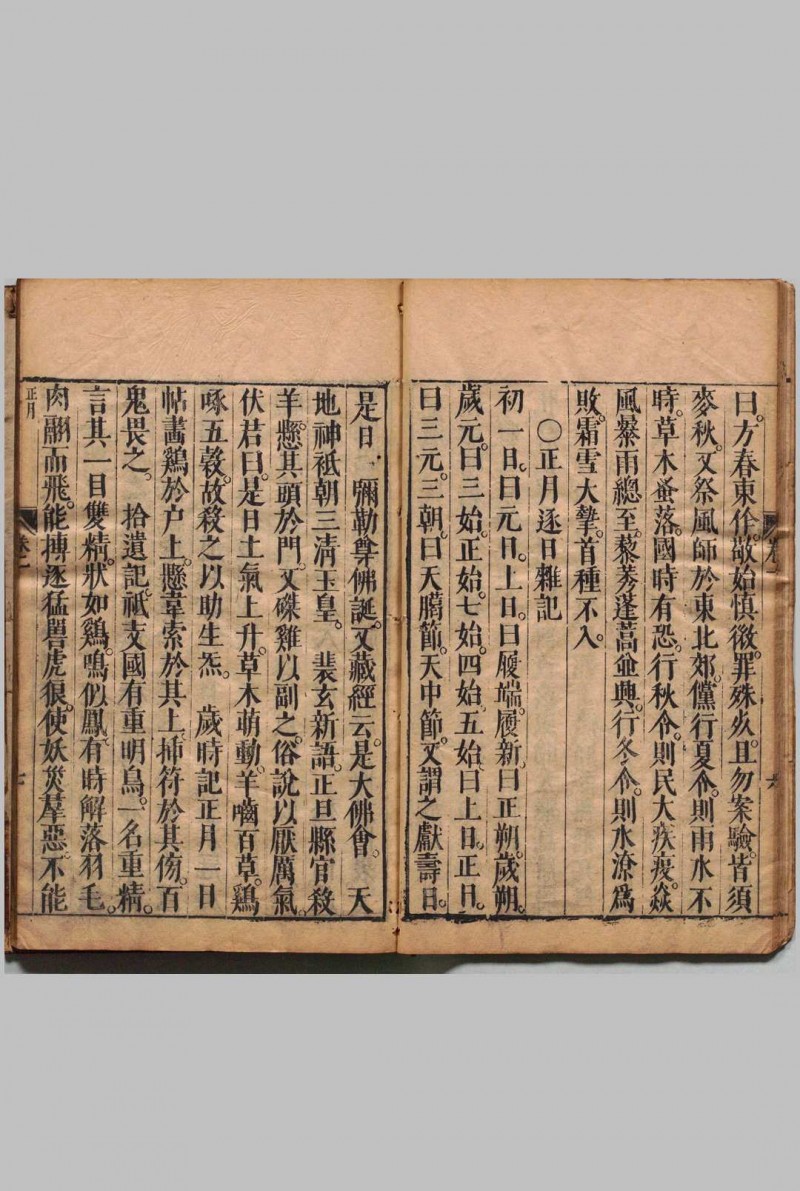 曰方春東作敬始慎微罪殊必且勿案驗皆須
麥秋又祭風師於東北郊儻行夏令則雨水不
時草木蚤落國時有恐行秋令則民大疾疫猋
風暴雨總至藜莠蓬蒿並興行冬令則水潦為
敗霜雪大摯首種不入
○正月逐日雜記
初一日曰元日上日曰履端履新曰正朔歲朔
歲元曰三始正始七始四始五始曰上日正日
曰三元三朝曰天臈節天中節又謂之獻壽日
是日 彌勒尊佛誕又藏經云是大佛會 天
地神祇朝三清玉皇 裴玄新語正旦縣官殺
羊懸其頭於門又磔雞以副之俗說以厭厲氣
伏君曰是日土氣上升草木萌動羊嚙百草鷄
啄五穀故殺之以助生炁 歲時記正月一日
帖畫鷄於户上懸葦索於其上揷符於其傍百
鬼畏之 拾遺記祗支國有重明鳥一名重精
言其一目雙精狀如鷄鳴似鳳有時解落羽毛
肉翮而飛能摶逐猛獸虎狼使妖災羣惡不能
正月
卷一
七
卷一
六